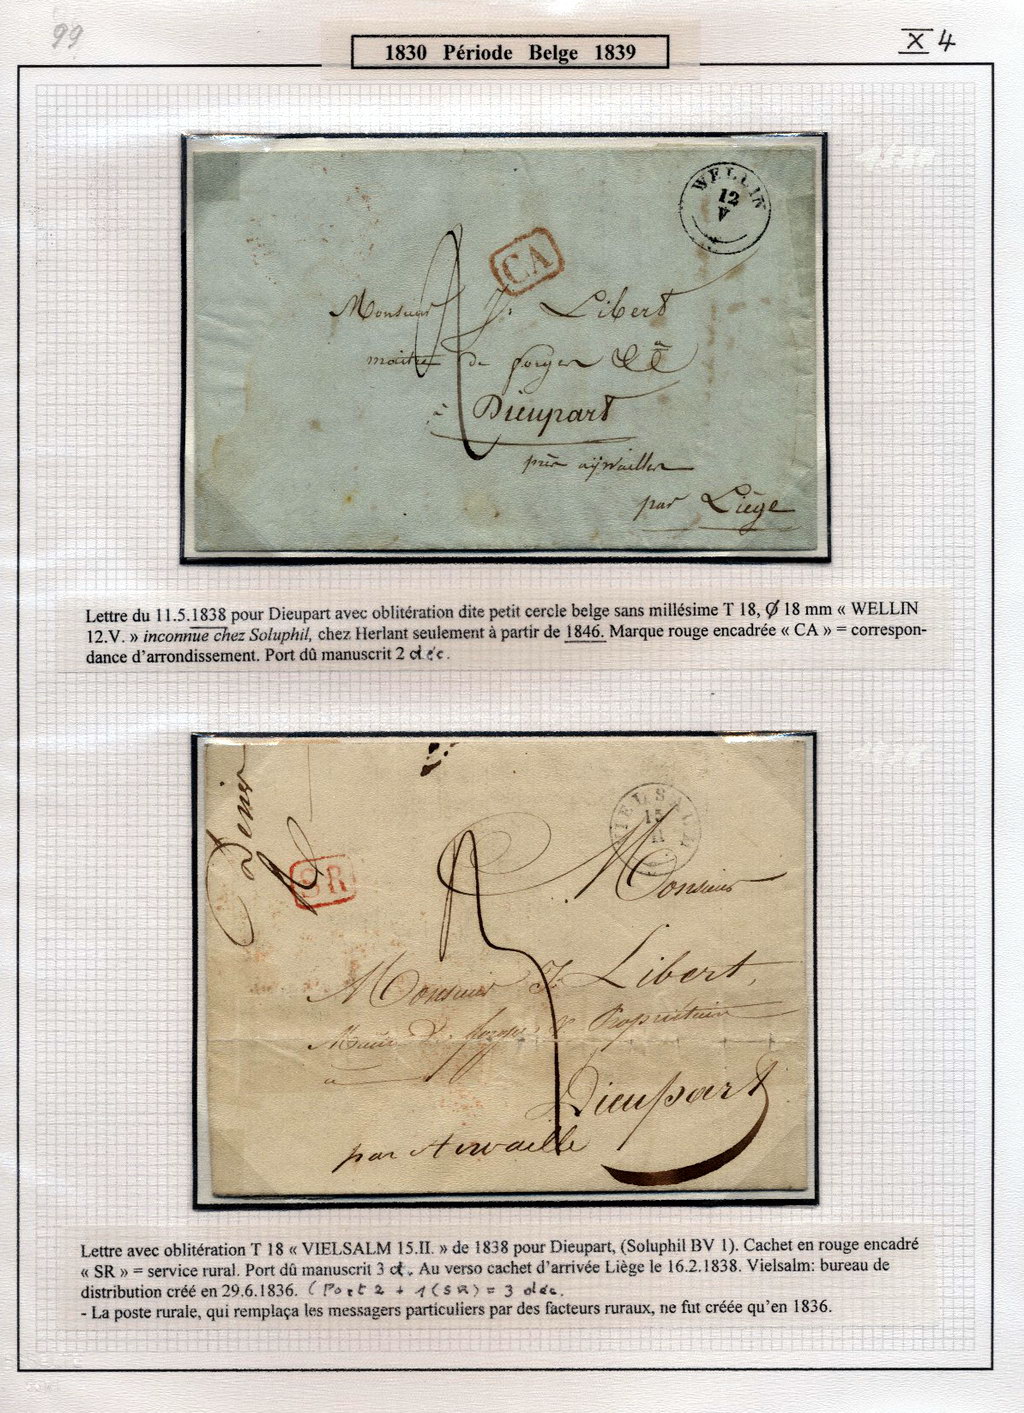 99
1830 Période Belge 1839
X 4
WELLIN
12
V
CA
Monsieur J. Libert
maitre de forges &&
à Dieupart
près aÿwailler
par Liège
Lettre du 11.5.1838 pour Dieupart avec oblitération dite petit cercle belge sans millésime T 18, Ø 18 mm « WELLIN
12.V. » inconnue chez Soluphil, chez Herlant seulement à partir de 1846. Marque rouge encadrée « CA » = correspon-
dance d'arrondissement. Port dû manuscrit 2 déc.
VIELSALM
15
II
SR
Monsieur
Monsieur J. Libert,
Maitre de forges & Propriétaire
à
Dieupart
par Aiwaille
Lettre avec oblitération T 18 « VIELSALM 15.II. » de 1838 pour Dieupart, (Soluphil BV 1). Cachet en rouge encadré
« SR » = service rural. Port dû manuscrit 3 d. Au verso cachet d'arrivée Liège le 16.2.1838. Vielsalm: bureau de
distribution créé en 29.6.1836. (Port 2 + 1 (SR) = 3 déc.
- La poste rurale, qui remplaça les messagers particuliers par des facteurs ruraux, ne fut créée qu'en 1836.